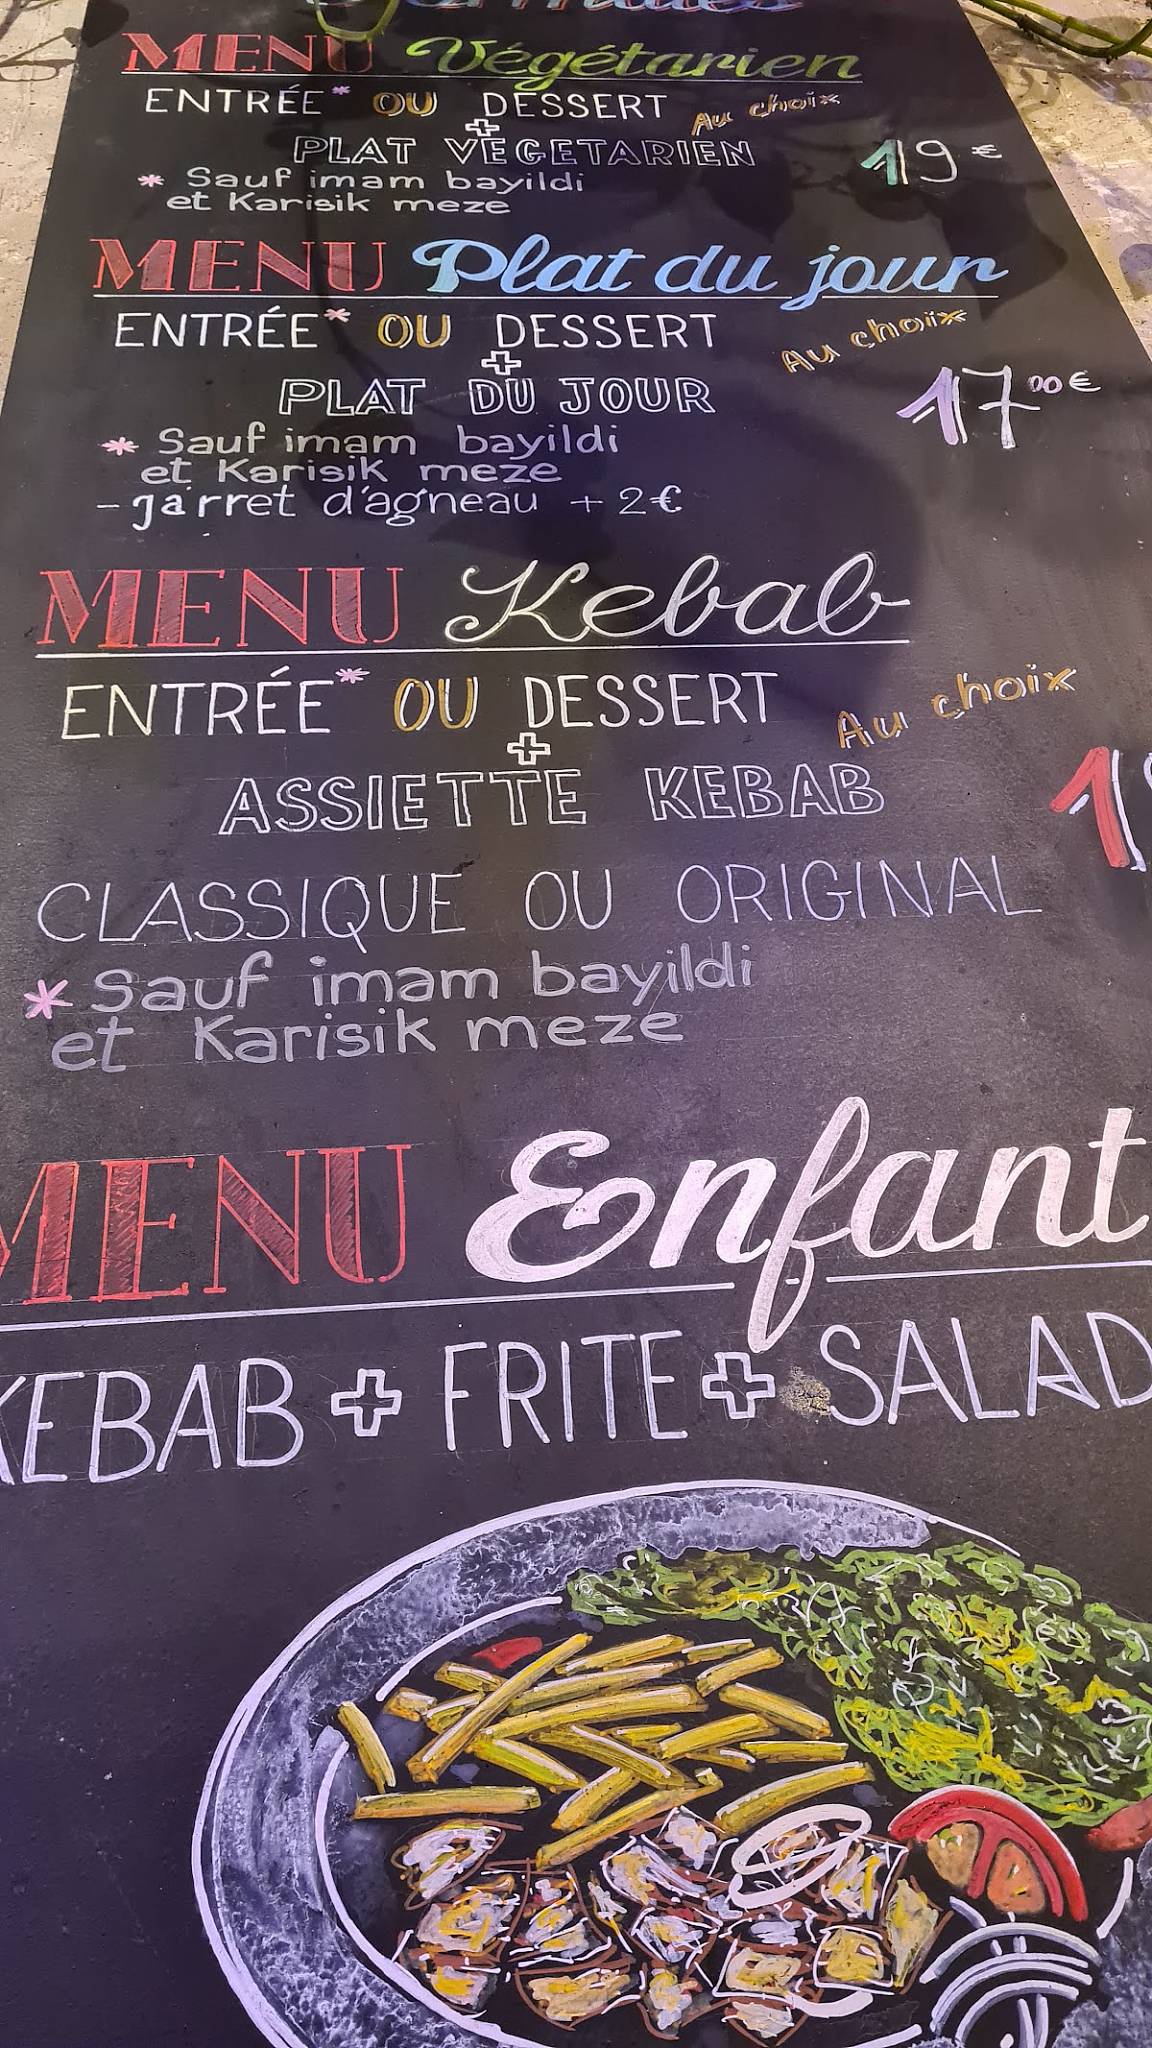 Formules
MENU Végétarien
ENTRÉE* OU DESSERT Au choix
+
PLAT VEGETARIEN 19 €
* Sauf imam bayildi
et Karisik meze
MENU Plat du jour
ENTRÉE* OU DESSERT Au choix
+
PLAT DU JOUR 17 00 €
* Sauf imam bayildi
et Karisik meze
- jarret d'agneau + 2 €
MENU Kebab
ENTRÉE* OU DESSERT Au choix
+
ASSIETTE KEBAB
CLASSIQUE OU ORIGINAL
* Sauf imam bayildi
et Karisik meze
MENU Enfant
KEBAB + FRITE + SALAD